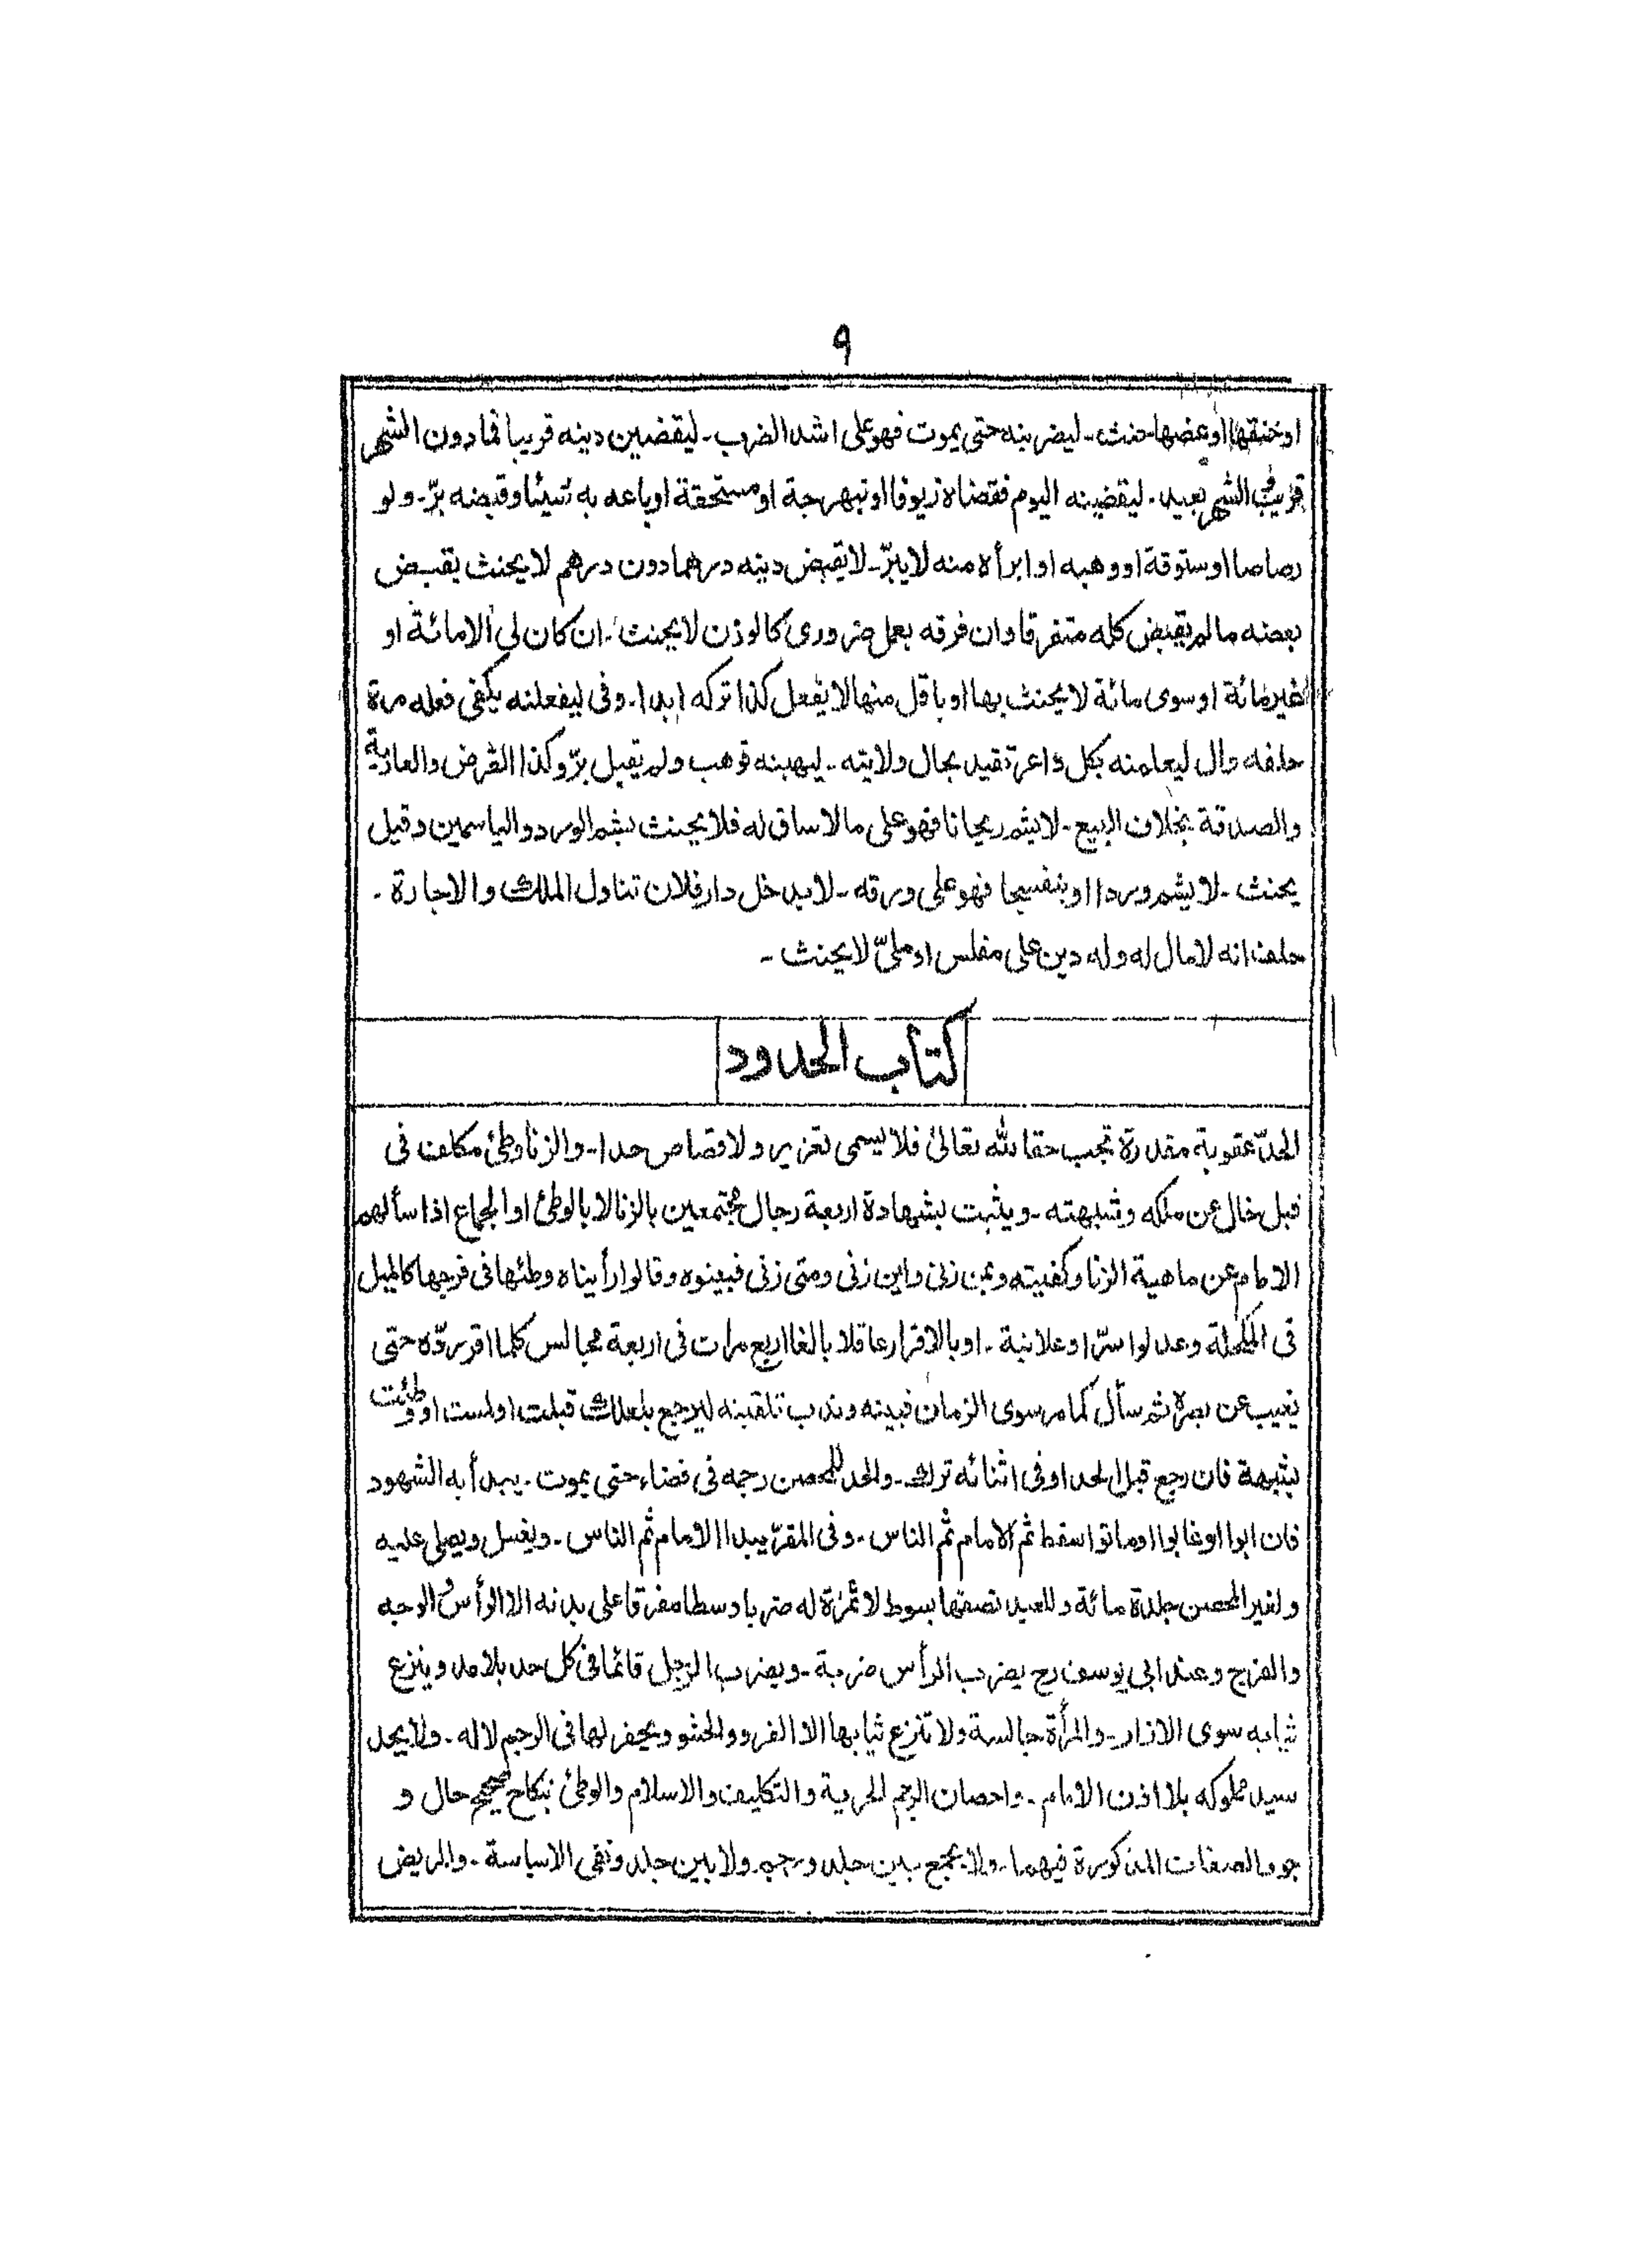 ٩
او خنقها او عضها حنث - ليضربنه حتى يموت فهو على اشد الضرب - ليقضين دينه قريبا فما دون الشهر
قريب والشهر بعيد - ليقضينه اليوم فقضاه زيوفا او نبهرجة او مستحقة او باعه به شيئا وقبضه برّ - ولو
رصاصا او ستوقة او وهبه او ابرأه منه لا يبرّ - لا يقبض دينه درهما دون درهم لا يحنث بقبض
بعضه ما لم يقبض كله متفرقا وان فرقه بعمل ضروري كالوزن لا يحنث - ان كان لي الا مائة او
غير مائة او سوى مائة لا يحنث بها او باقل منها لا يفعل كذا تركه ابدا - وفى ليفعلنه يكفى فعله مرة
حلفه وال ليعلمنه بكل داعر تقيد بحال ولايته - ليهبنه فوهب ولم يقبل برّ وكذا القرض والعارية
والصدقة بخلاف البيع - لا يشم ريحانا فهو على ما لا ساق له فلا يحنث بشم الورد والياسمين وقيل
يحنث - لا يشم وردا او بنفسجا فهو على ورقه - لا يدخل دار فلان تناول الملك والاجارة -
حلف انه لا مال له وله دين على مفلس او مليّ لا يحنث -
كتاب الحدود
الحدّ عقوبة مقدرة تجب حقا لله تعالىٰ فلا يسمى تعزير ولا قصاص حدا - والزنا وطئ مكلف فى
قبل خال عن ملكه وشبهته - ويثبت بشهادة اربعة رجال مجتمعين بالزنا لا بالوطئ او الجماع اذا سألهم
الامام عن ماهية الزنا وكيفيته وبمن زنى واين زنى ومتى زنى فبينوه وقالوا رأيناه وطئها فى فرجها كالميل
فى المكحلة وعدلوا سرّا وعلانية - او بالاقرار عاقلا بالغا اربع مرات فى اربعة مجالس كلما اقر ردّه حتى
يغيب عن بصره ثم سأل كما مر سوى الزمان فبينه وندب تلقينه ليرجع بلعلك قبلت او لمست او وطئت
بشبهة فان رجع قبل الحد او فى اثنائه ترك - والحد للمحصن رجمه فى فضاء حتى يموت - يبدأ به الشهود
فان ابوا او غابوا او ماتوا سقط ثم الامام ثم الناس - وفى المقرّ يبدا الامام ثم الناس - ويغسل ويصلى عليه
ولغير المحصن جلدة مائة وللعبد نصفها بسوط لا ثمرة له ضربا وسطا مفرقا على بدنه الا الرأس والوجه
والفرج وعند ابي يوسف رح يضرب الرأس ضربة - ويضرب الرجل قائما فى كل حد بلا مد وينزع
ثيابه سوى الازار - والمرأة جالسة ولا تنزع ثيابها الا الفرو والحشو ويحفر لها فى الرجم لا له - ولا يحد
سيد مملوكه بلا اذن الامام - واحصان الرجم الحرية والتكليف والاسلام والوطئ بنكاح صحيح حال و
جود الصفات المذكورة فيهما - ولا يجمع بين جلد ورجم ولا بين جلد ونفى الا سياسة - والمريض